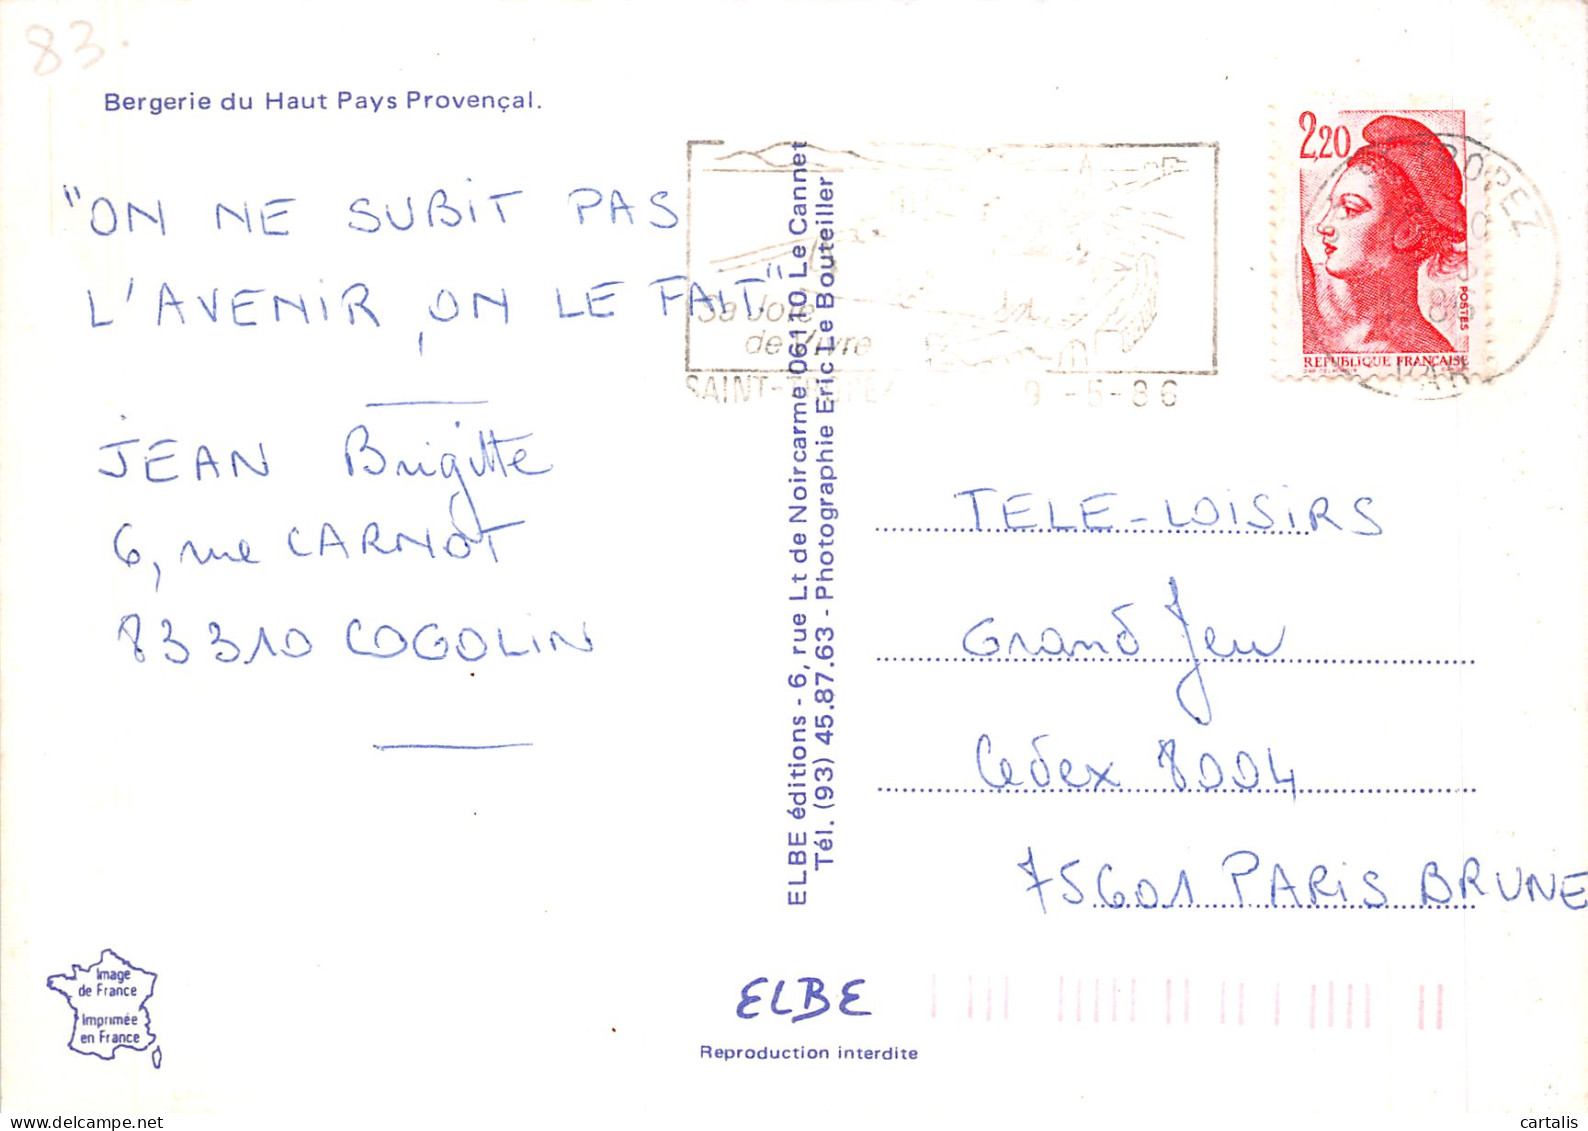 83.
Bergerie du Haut Pays Provençal.
"ON NE SUBIT PAS
L'AVENIR, ON LE FAIT."
JEAN Brigitte
6, rue CARNOT
83310 COGOLIN
Image
de France
Imprimée
en France
de Vivre
SAINT-TROPEZ 9-5-86
ELBE éditions - 6, rue Lt de Noircarme 06110 Le Cannet
Tél. (93) 45.87.63 - Photographie Eric Le Bouteiller
2,20
POSTES
REPUBLIQUE FRANÇAISE
TROPEZ
86
VAR
TELE-LOISIRS
Grand Jeu
Cedex 8004
75601 PARIS BRUNE
ELBE
Reproduction interdite
cartalis